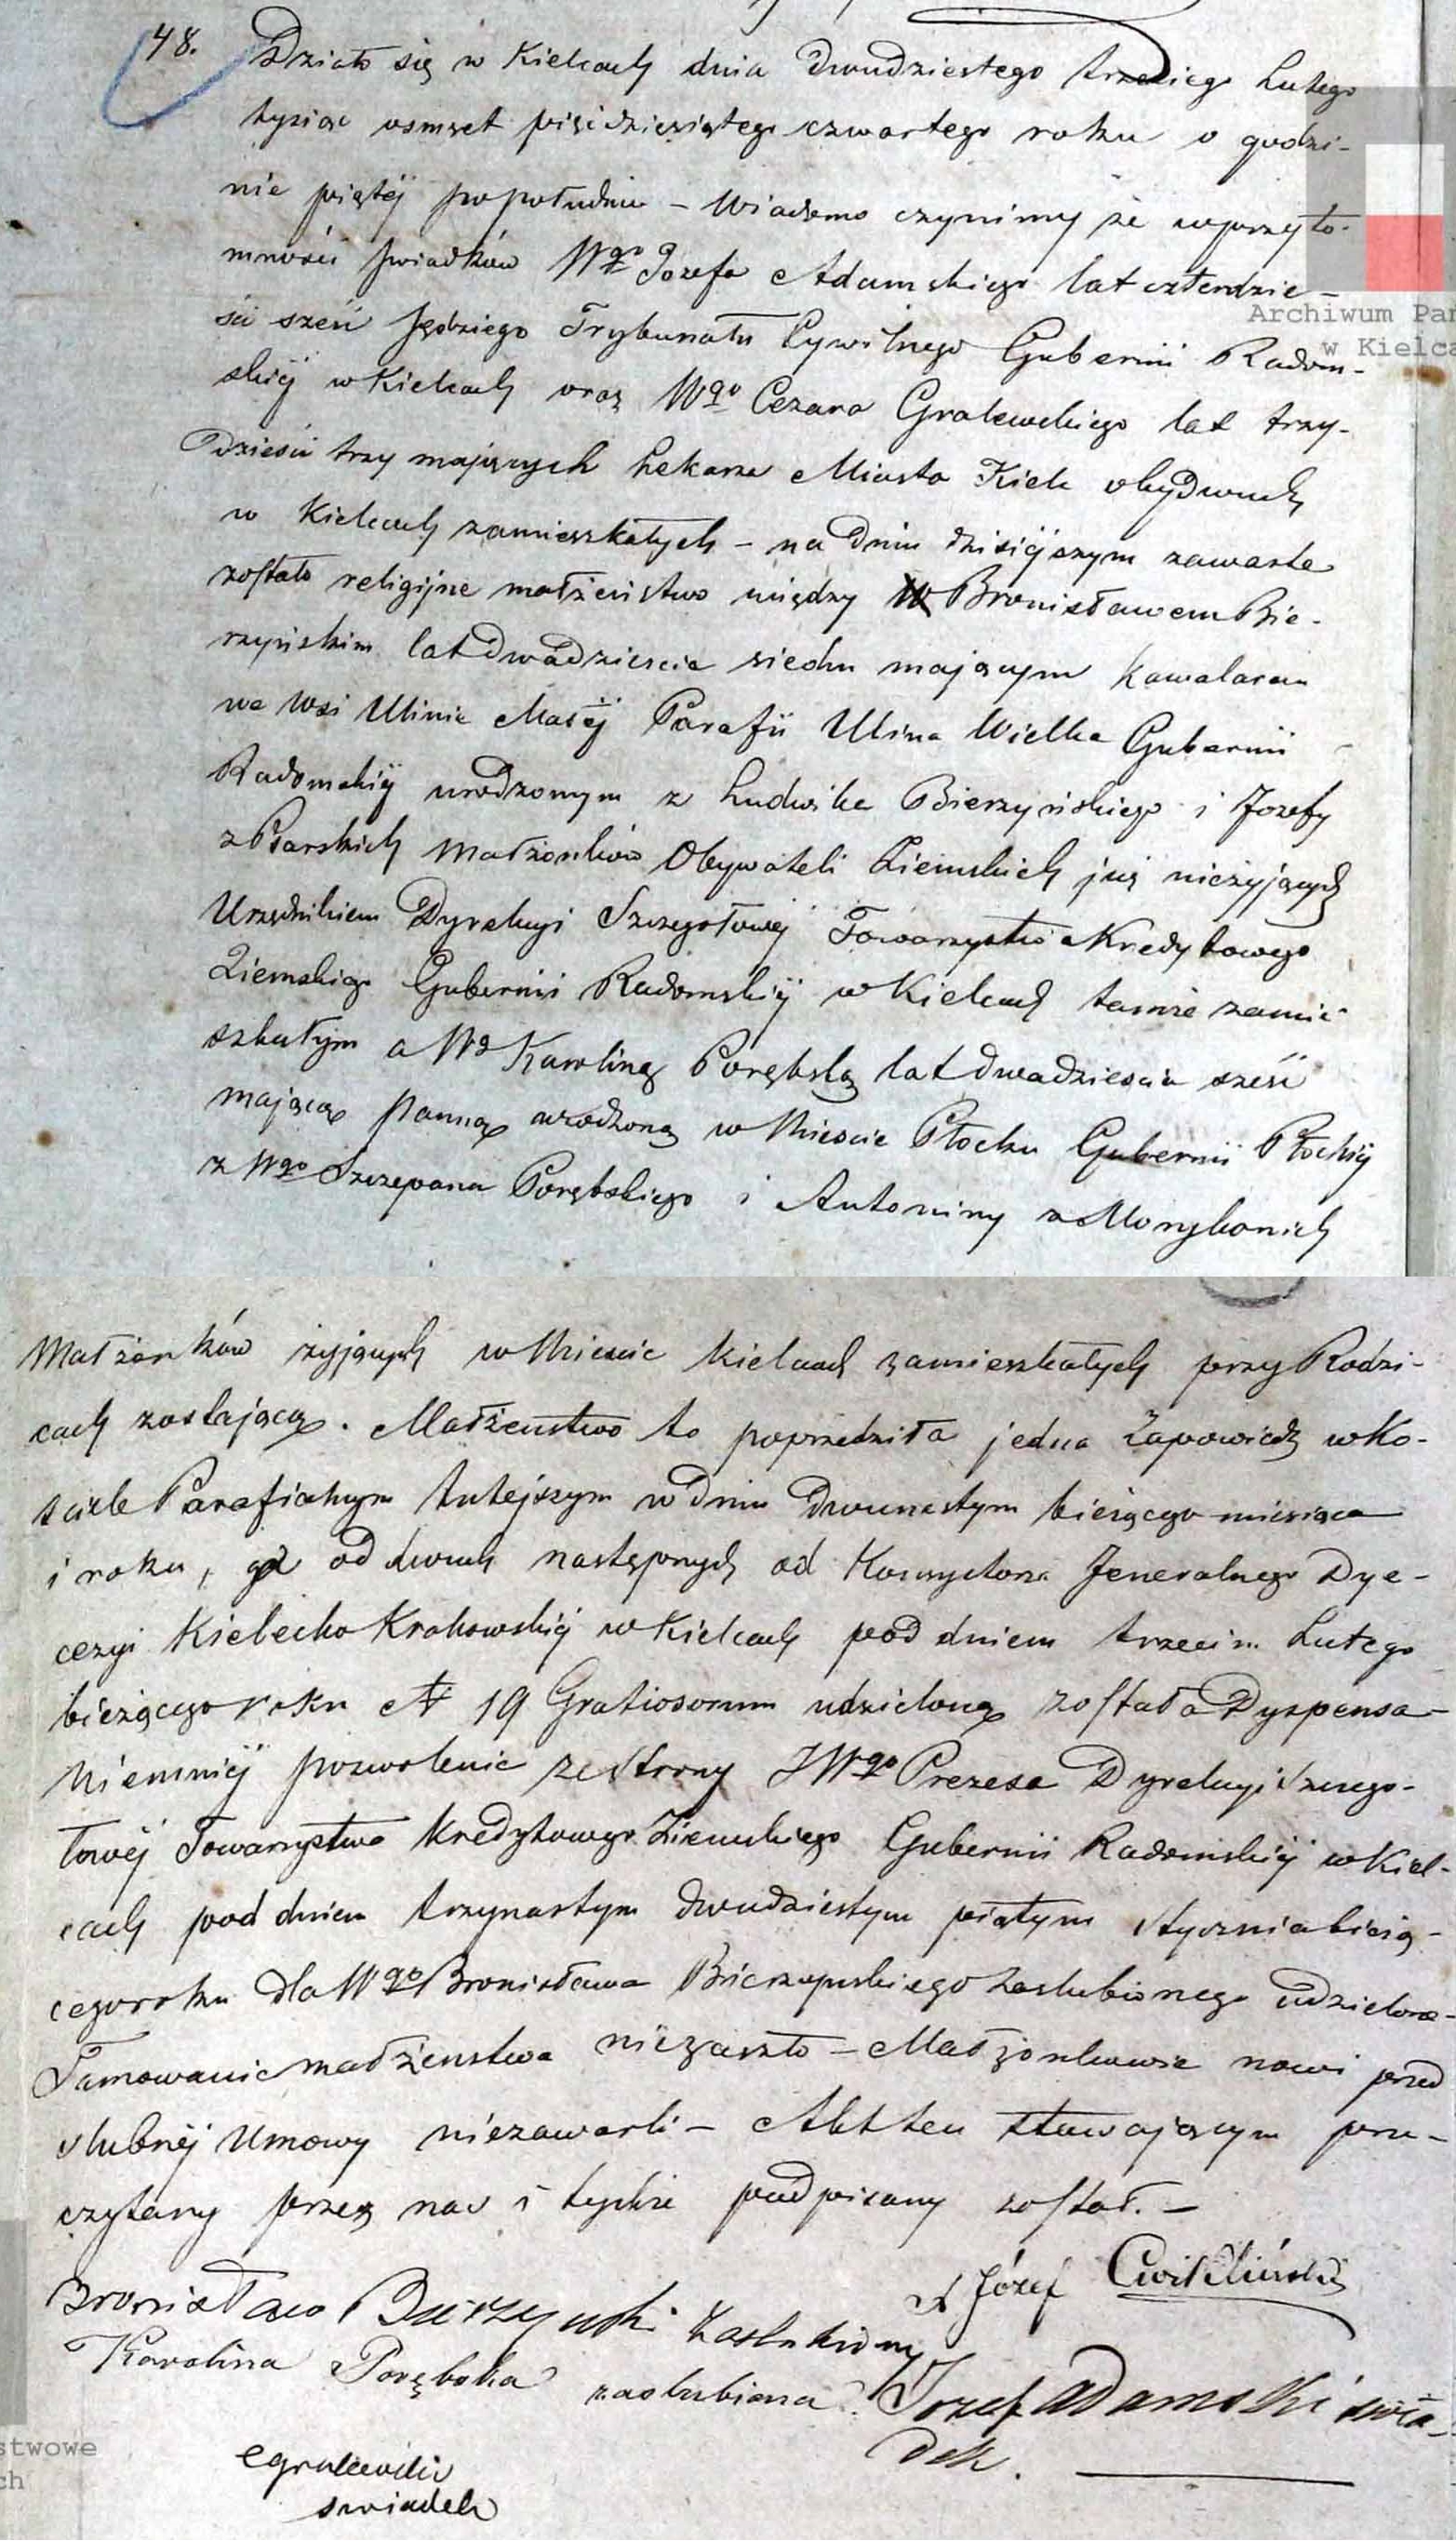 48. Działo się w Kielcach dnia dwudziestego trzeciego Lutego
tysiąc osmset pięćdziesiątego czwartego roku o godzi-
nie piątéj popołudniu – Wiadomo czynimy że wprzyto-
mności świadków Wgo Jozefa Adamskiego lat czterdzie-
ści sześć Sędziego Trybunału Cywilnego Gubernii Radom-
skiéj w Kielcach oraz Wgo Cezara Gralewskiego lat trzy-
dzieści trzy mających Lekarza Miasta Kielc obydwuch
w Kielcach zamieszkałych – na dniu dzisiéjszym zawarte
zostało religijne małżeństwo między Bronisławem Bie-
rzyńskim lat dwadzieścia siedm mającym Kawalerem
we Wsi Ulinie Małéj Parafii Ulina Wielka Gubernii
Radomskiéj urodzonym z Ludwika Bierzyńskiego i Jozefy
z Psarskich Małżonków Obywateli Ziemskich już nieżyjących
Urzędnikiem Dyrekcyi Szczegołowéj Towarzystwa Kredytowego
Ziemskiego Gubernii Radomskiéj w Kielcach tamże zamie-
szkałym a Wą Karoliną Porębską lat dwadzieścia sześć
mającą Panną urodzoną w Mieście Płocku Gubernii Płockiéj
z Wgo Szczepana Porębskiego i Antoniny z Morykonich
Małżonków żyjących w Mieście Kielcach zamieszkałych przy Rodzi-
cach zostającą. Małżeństwo to poprzedziła jedna Zapowiedz w Ko-
sciele Parafialnym tutejszym w dniu dwunastym bieżącego miesiąca
i roku, od dwuch następnych od Konsystorza Jeneralnego Dye-
cezyi Kielecko Krakowskiéj w Kielcach pod dniem trzecim Lutego
bieżącego roku N 19 Gratiosorum udzieloną została Dyspensa –
Niemniéj pozwolenie ze strony JWgo Prezesa Dyrekcyi Szczego-
łowéj Towarzystwa Kredytowego Ziemskiego Gubernii Radomskiéj w Kiel-
cach pod dniem trzynastym dwudziestym piątym Stycznia bieżą-
cego roku dla Wgo Bronisława Bierzyńskiego Zaslubionego udzielone –
Tamowanie małżenstwa niezaszło – Małżonkowie nowi przed
slubnéj Umowy niezawarli – Akt ten stawającym prze-
czytany przez nas i tychże podpisany został. –
X Józef Ćwikliński
Bronisław Bierzyński Zaslubiony
Karolina Porębska zaslubiona. Jozef Adamski świa-
dek.
CGralewski
swiadek
Archiwum Pań
w Kielca
stwowe
ch